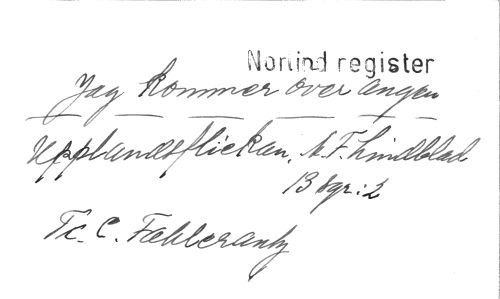 Norlind register
Jag kommer över ängen
Upplandsflickan. A. F. Lindblad
13 sgr: 2
Tc. C. Fahlcrantz